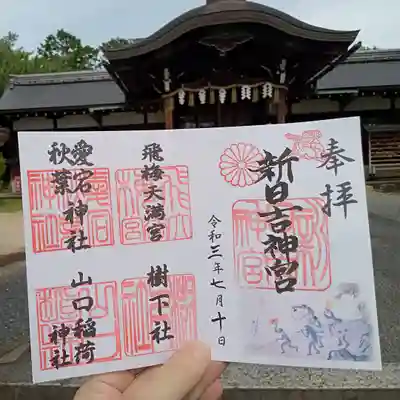 奉拝
新日吉神宮
令和三年七月十日
飛梅天満宮
愛宕神社
秋葉
樹下社
山口稲荷
神社